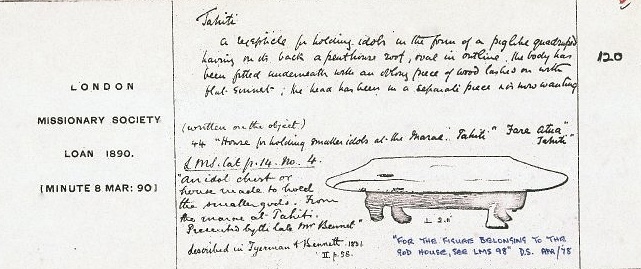 LONDON
MISSIONARY SOCIETY
LOAN 1890.
[MINUTE 8 MAR: 90]
Tahiti
a recepticle for holding idols in the form of a piglike quadruped
having on its back a penthouse roof, oval in outline. The body has
been fitted underneath with an oblong piece of wood lashed on with
flat sinnet; the head has been in a separate piece now wanting
120
(written on the object)
44 "House for holding smaller idols at the Marae. Tahiti" "Fare Atua"
Tahiti"
LMS. Cat p. 14. No. 4.
"An idol chest or
house made to hold
the smaller gods. From
the marae at Tahiti.
Presented by the late Mr Bennet"
described in Tyerman & Bennett. 1831
II p. 56.
L 2.11"
"FOR THE FIGURE BELONGING TO THE
GOD HOUSE, SEE LMS 98" D.S. APR/'78